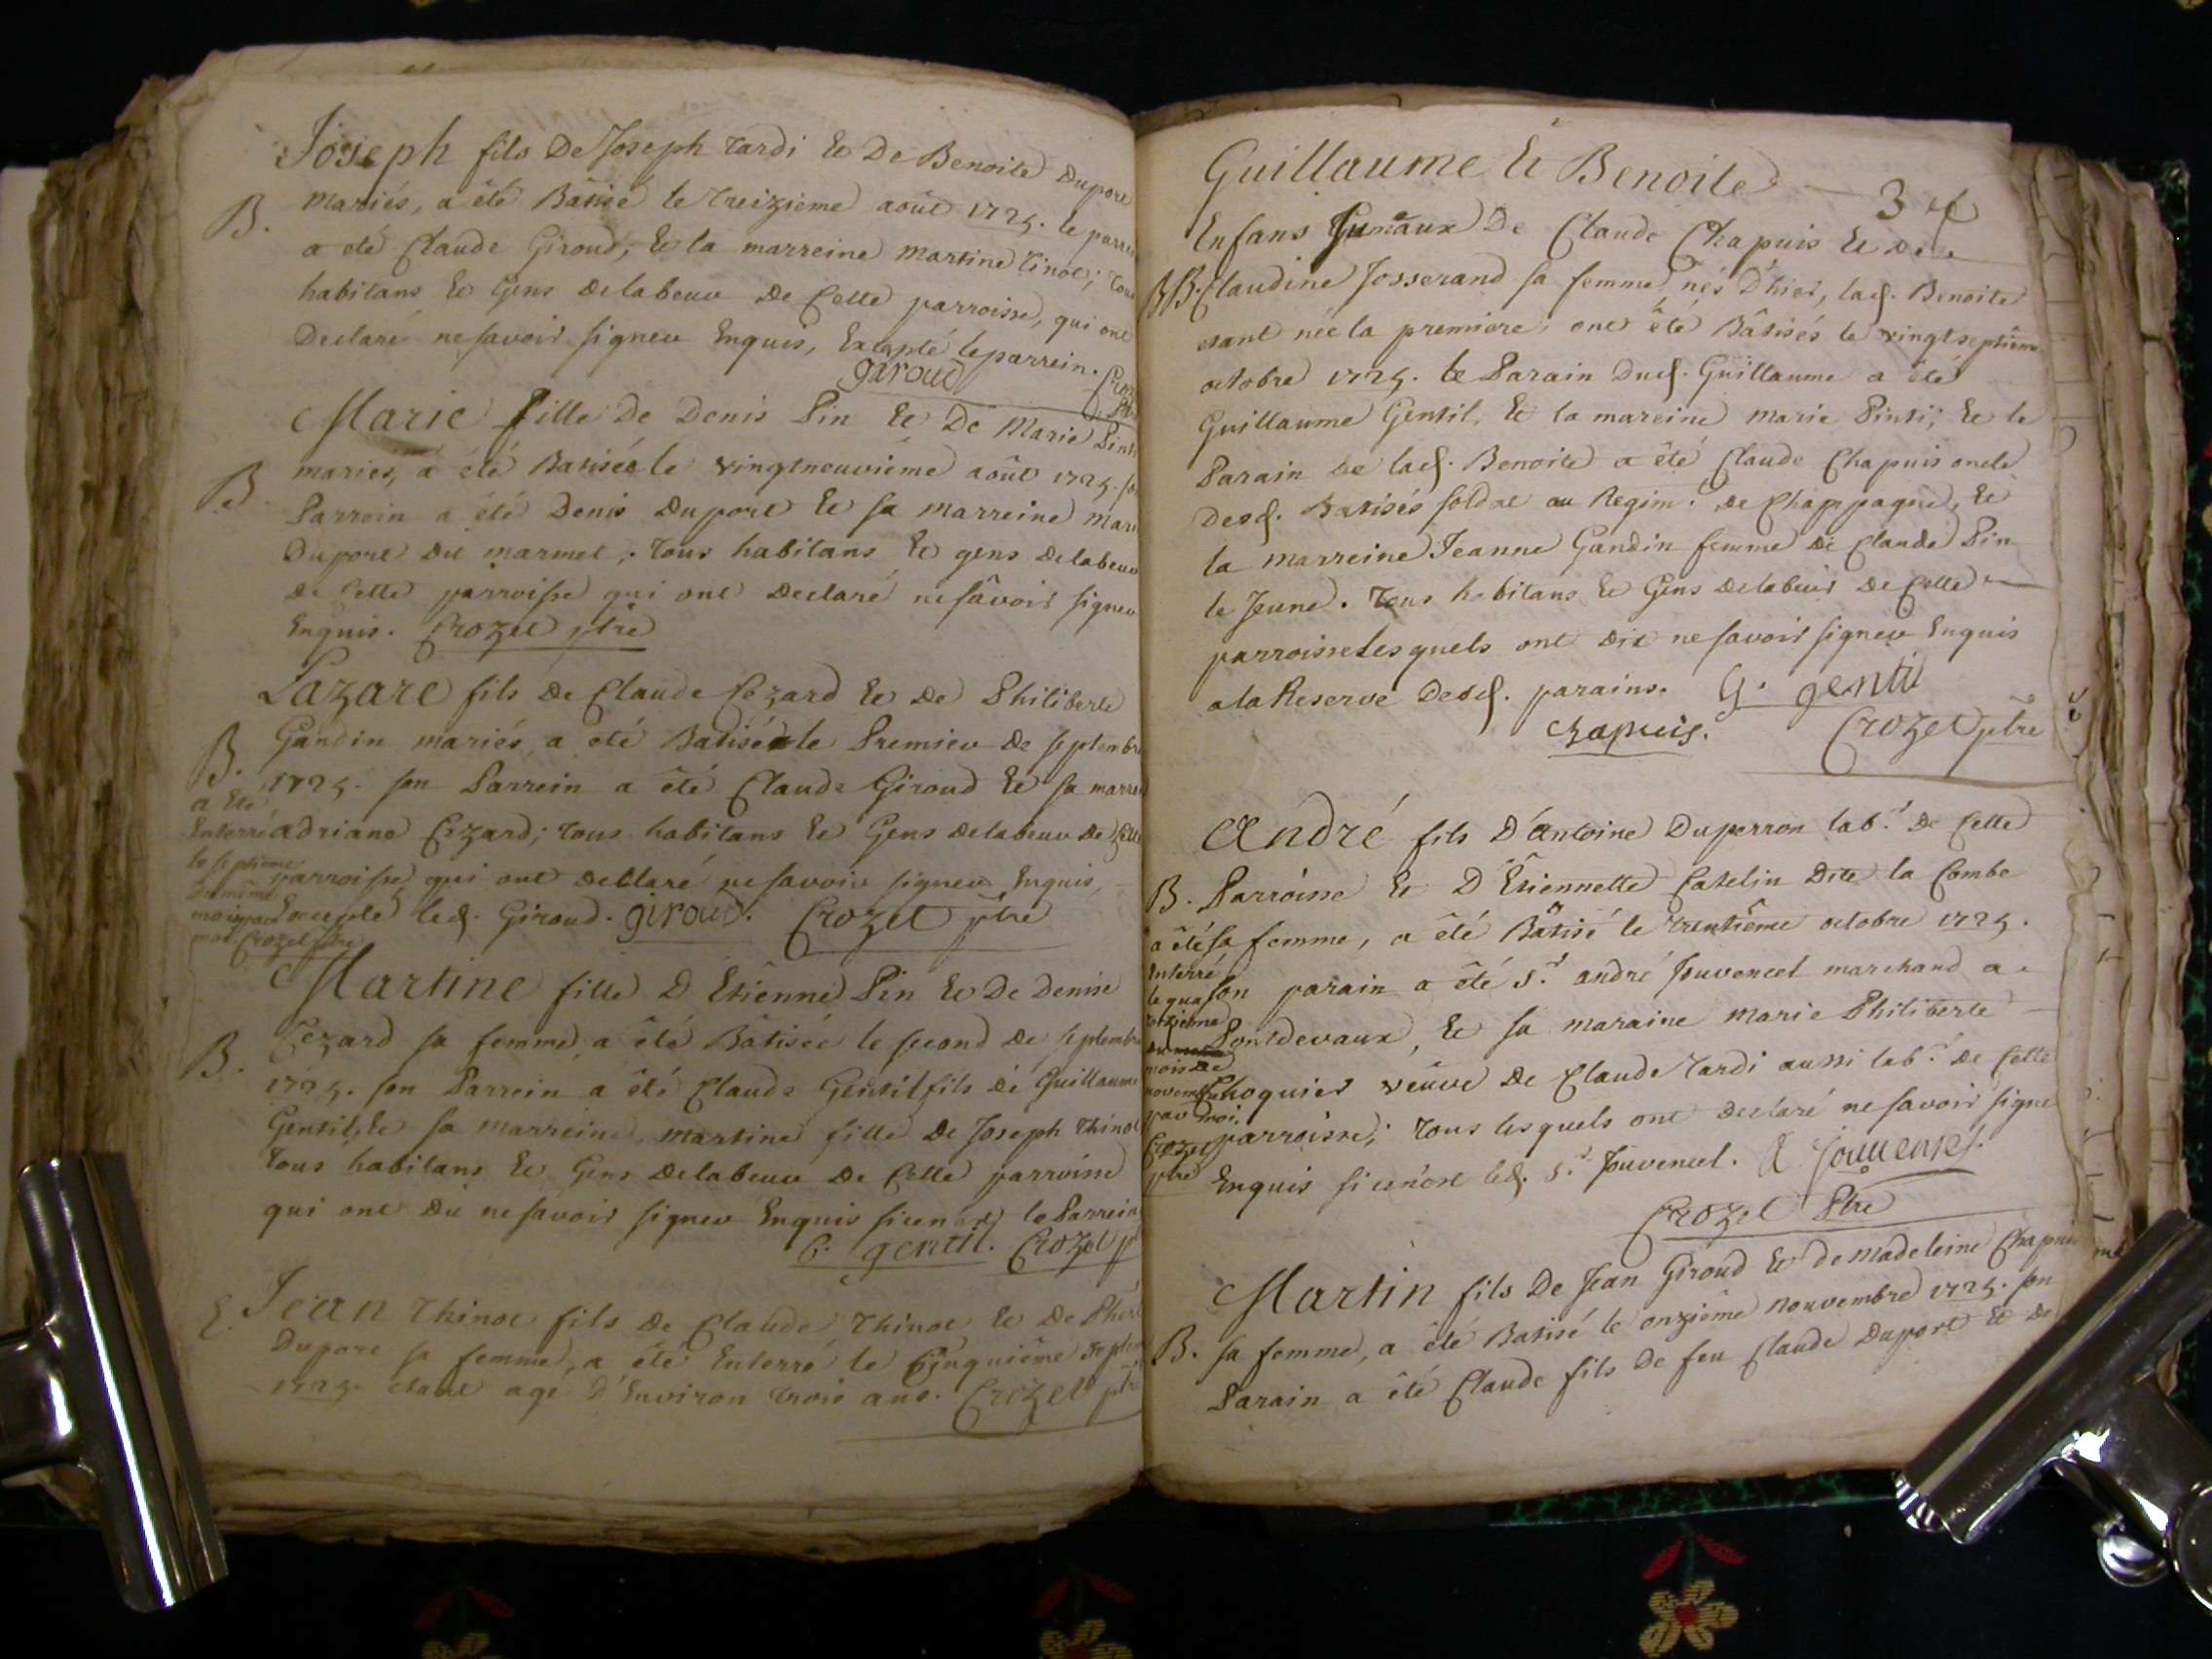 Joseph fils De Joseph Tardi Et De Benoite Duport
B. mariés, a été Batisé le treizieme août 1725. le parre
a été Claude Giroud, Et la marreine Martine Tinot; tous
habitans Et Gens delabeur De Cette parroisse, qui ont
Declaré ne savoir signer Enquis, Excepté le parrein.
giroud Croz
Marie fille De Denis Pin Et De Marie Pinti
B. mariés, a été Batisée le vingtneuvième août 1725. son
Parrein a été Denis Duport Et sa marreine Mari
Duport dit marmet; Tous habitans Et gens delabeur
de Cette parroisse qui ont declaré ne savoir signer
Enquis. Crozet ptre
Lazare fils de Claude Cezard Et de Philiberte
B. Gandin mariés a été Batisé le Premier de septembre
1725. son Parrein a été Claude Giroud Et sa marre
adriane Cezard; tous habitans Et Gens delabeur de Cette
parroisse, qui ont declaré ne savoir signer Enquis,
Excepté led. Giroud. giroud. Crozet ptre
a été
Enterré
le septieme
du même
mois par
moi. Crozet ptre
Martine fille D'Etiênne Pin Et De Denise
B. Cezard sa femme, a été Bâtisée le second de septembre
1725. son Parrein a été Claude Gentil fils de Guillaume
Gentil, Et sa marreine, martine fille de Joseph Thinot
Tous habitans Et Gens delabeur de Cette parroisse
qui ont dit ne savoir signer Enquis si ce n'est le Parrein
C. gentil. Crozet p
E. Jean Thinot fils de Claude Thinot Et de
Duport sa femme, a été Enterré le Cinquième septem
1725. etant agé D'Environ trois ans. Crozet ptre
Guillaume Et Benoite
Enfans Jumaux De Claude Chapuis Et De
BB. Claudine Josserand sa femme, nés D'hier, lad. Benoite
etant née la premiere; ont été Bâtisés le vingtseptième
octobre 1725. le Parain dud. Guillaume a été
Guillaume Gentil, Et la mareine marie Pinti; Et le
Parain de lad. Benoite a été Claude Chapuis oncle
Desd. Batisés soldat au Regim.t de Chappagne, Et
la marreine Jeanne Gandin femme de Claude Pin
le Jeune. Tous habitans Et Gens delabeur de Cette
parroisse Lesquels ont dit ne savoir signer Enquis
a la Reserve desd. parains. G. gentil
chapuis. Crozet ptre
André fils D'antoine Duperron lab.r de Cette
B. Parroisse Et D'Etiennette Catelin Dite la Combe
sa femme, a été Bâtisé le trentième octobre 1725.
son parain a été S.r andré Jouvencel marchand a
Pontdevaux, Et sa maraine marie Philiberte
Choquier veuve de Claude Tardi aussi lab.r de Cette
parroisse; Tous lesquels ont declaré ne savoir signe
Enquis si ce n'est led. S.r Jouvencel. A Jouvencel.
Crozet Ptre
a été
Enterré
le qua
torzieme
mois de
novembre
par moi.
Crozet
ptre
Martin fils De Jean Giroud Et de madeleine Chapuis
B. sa femme, a été Batisé le onzième nouvembre 1725. son
Parain a été Claude fils de feu Claude Duport Et de